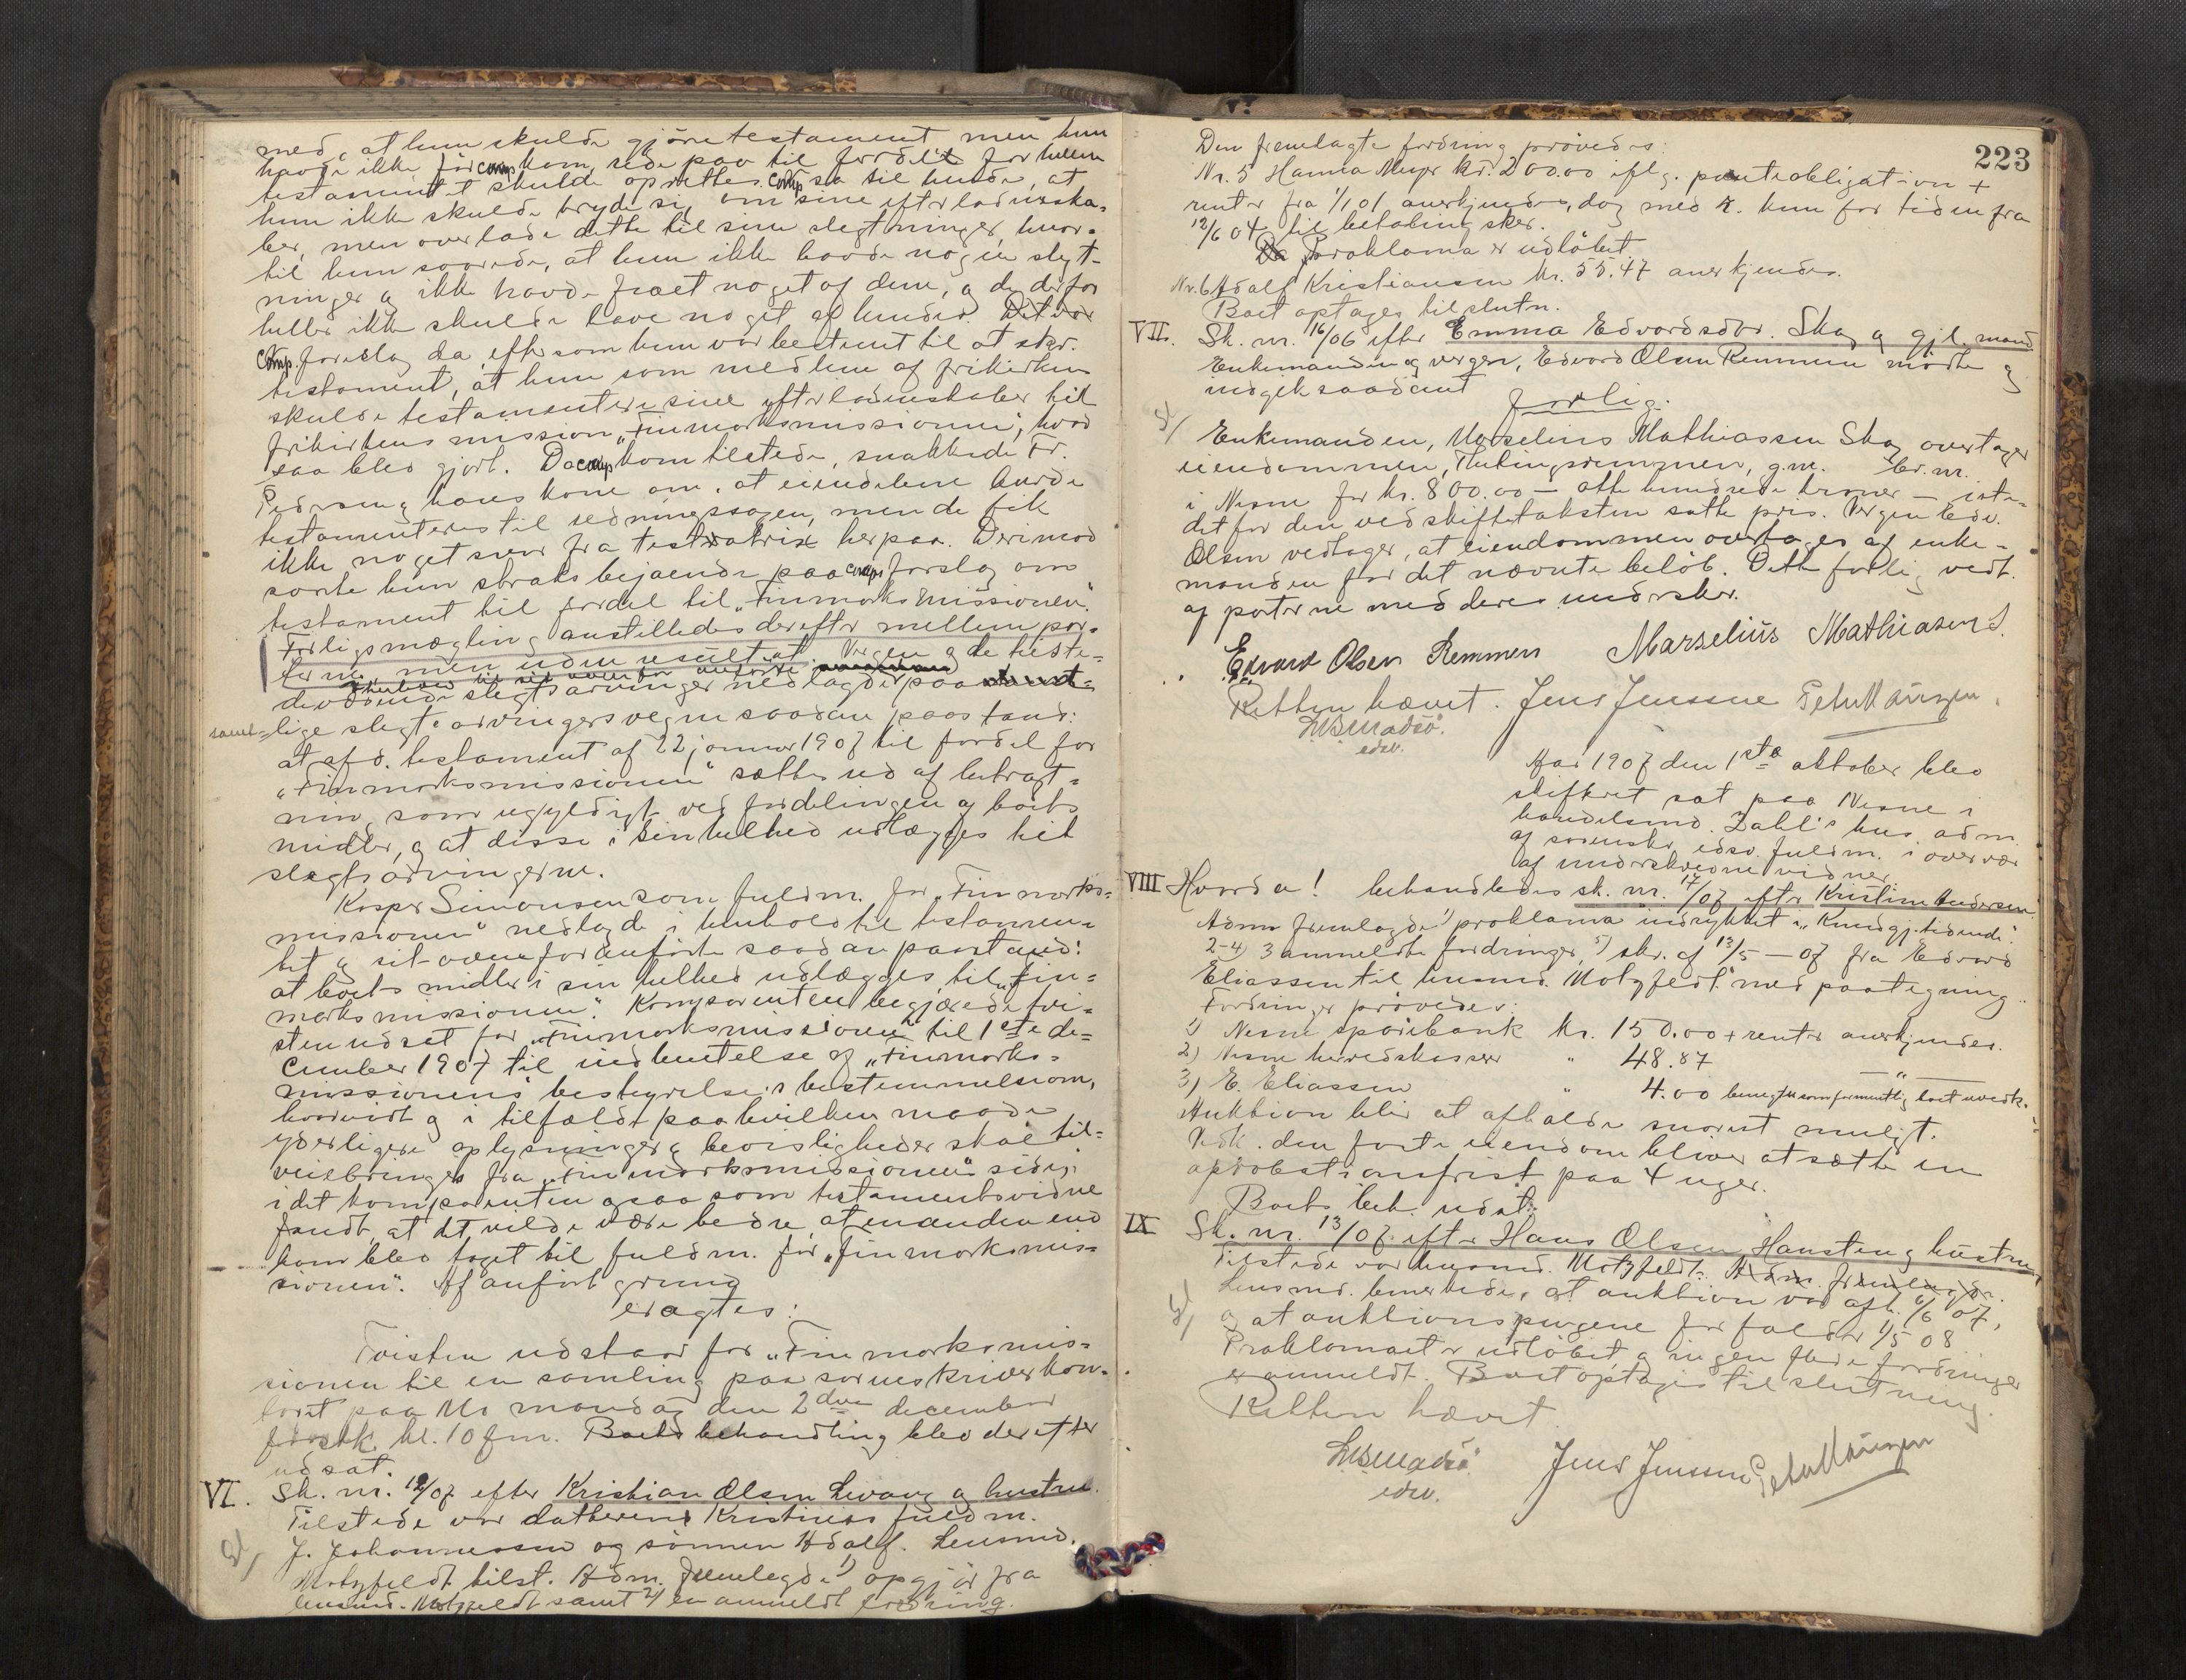 med, at hun skulde gjøre testament men hun
havde ikke før comp kom, rede paa til fordel for hvem
testamentet skulde oprettes. Comp sa til hende, at
hun ikke skulde bryde sig om sine efterladenska-
ber, men overlade dette til sine slegtninger, hvor-
til hun svarede, at hun ikke havde nogen slegt-
ninger og ikke havde faaet noget af dem, og de derfor
heller ikke skulde have noget af hende. Det var
Comp. foreslog da eftersom hun var bestemt til at skr.
testament, at hun som medlem af frikirken
skulde testamentere sine efterladenskaber til
frikirkens mission „Finmarksmissionen", hvad
saa blev gjort. Da comp kom tilstede, snakkede Fr.
Pedersen og hans kone om, at eiendelene burde
testamenteres til redningssagen, men de fik
ikke noget svar fra testratrix herpaa. Derimod
svarte hun straks bejaende paa comps forslag om
testament til fordel til „Finmarksmissionen".
Forligsmægling anstilledes derefter mellem par-
terne men uden resultat. Vergen og de tilste-
deværende slegtsarvinger nedlagde paa
samt-lige slegtsarvingers vegne saadan paastand:
at afd. testament af 22 januar 1907 til fordel for
„Finmarksmissionen" sættes ud af betragt-
ning som ugyldigt ved fordelingen af boets
midler, og at disse i sin helhed udlægges til
slegtsarvingerne.
Kasper Simonsen som fuldm. for „Finmarks-
missionen" nedlagde i henhold til testamen-
tet og sit ovenfor anførte saadan paastand:
at boets midler i sin helhed udlægges til „Fin-
marksmissionen". Komparenten begjærede tvi-
sten udsat for „Finmarksmissionen" til 1ste de-
cember 1907 til indhentelse af „Finmarks-
missionens" bestyrelses bestemmelse om,
hvorvidt og i tilfælde paa hvilken maade
yderligere oplysninger og bevisligheder skal til-
veiebringes fra „Finmarksmissionens" side,
idet komparenten ogsaa som testamentsvidne
fandt, at det vilde være bedre, at en anden end
ham blev taget til fuldm. for „Finmarksmis-
sionen". Af anført grund
eragtes:
Tvisten udstaar for „Finmarksmis-
sionen til en samling paa sorenskriverkon-
toret paa Mo mandag den 2den december
førstk. kl. 10 fm. Boets behandling blev derefter
udsat.
VI. Sk. nr. 12/07 efter Kristian Olsen Levang og hustru.
Tilstede var datteren Kristines fuldm.
J. Johannessen og sønnen Adolf. Lensmd.
Motzfeldt tilst. Adm. fremlagde 1) opgjør fra
lensmd. Motzfeldt samt 2) en anmeldt fordring.
223
Den fremlagte fordring prøvedes:
Nr. 5 Hanna Meyer kr. 200.00 iflg. panteobligation +
renter fra 1/1 01 anerkjendes, dog med r. kun for tiden fra
12/6 04 til betaling sker.
Da Proklama er udløbet
Nr. 6 Adolf Kristiansen kr. 55.47 anerkjendes.
Boet optages til slutn.
VII. Sk. nr. 16/06 efter Emma Edvardsdtr. Skog og gjl. mand
Enkemanden og vergen, Edvard Olsen Remmen mødte og
indgik saadant
forlig.
Enkemanden, Marselius Mathiassen Skog overtager
eiendommen, g.nr. br.nr.
i Nesne for kr. 800.00 — otte hundrede kroner — iste-
detfor den ved skiftetaksten satte pris. Vergen Edv.
Olsen vedtager, at eiendommen overtages af enke-
manden for det nævnte beløb. Dette forlig vedt.
af parterne med deres underskr.
Edvard Olsen Remmen Marselius Mathiasen S.
Retten hævet. Jens Jenssen
edsv.
Aar 1907 den 1ste oktober blev
skifteret sat paa Nesne i
handelsmd. Zahl's hus adm.
af sorenskr. edsv. fuldm. i overvær
af underskrevne vidner
VIII Hvorda! behandledes sk. nr. 17/07 efter Kristine Andersen.
Adm fremlagde 1) proklama indrykket i „Kundgj.tidende".
2-4) 3 anmeldte fordringer, 5) skr. af 13/5 — 07 fra Edvard
Eliassen til lensmd. Motzfeldt med paategning.
Fordringer prøvedes:
1) Nesne sparebank kr. 150.00 + renter anerkjendes.
2) Nesne herredskasserer " 48.87 — " —
3) E. Eliassen " 4.00
Auktion blir at afholde snarest muligt.
Vedk. den faste eiendom bliver at sætte en
approbationsfrist paa 4 uger.
Boets beh. udsat.
IX Sk. nr. 13/07 efter Hans Olsen Hansteng hustru,
Tilstede var lensmd. Motzfeldt. Adm. fremlagde.
Lensmd. bemerkede, at auktion var afh. 6/6 07,
og at auktionspengene forfalder 1/5 08
Proklamaet er udløbet, og ingen flere fordringer
er anmeldt. Boet optages til slutning.
Retten hævet
Jens Jenssen
edsv.